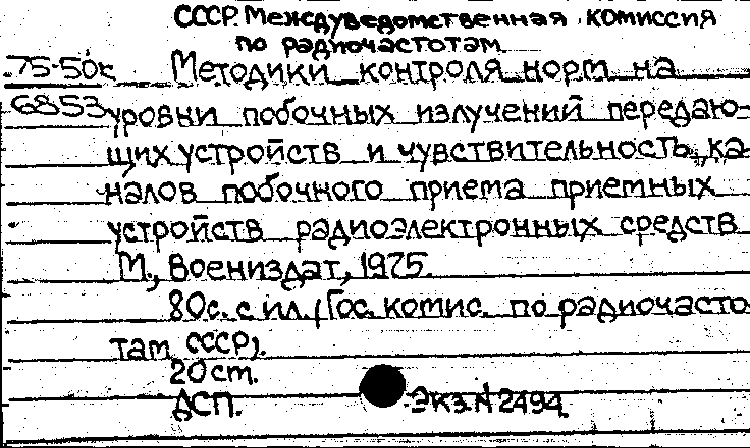 СССР. Междуведомственная комиссия
по радиочастотам
75-50к Методики контроля норм на
6853 уровни побочных излучений передаю-
щих устройств и чувствительность ка-
налов побочного приема приемных
устройств радиоэлектронных средств
М., Воениздат, 1975.
80с. с ил. (Гос. комис. по радиочасто-
там СССР).
20 ст.
ДСП. Экз. N 2494.